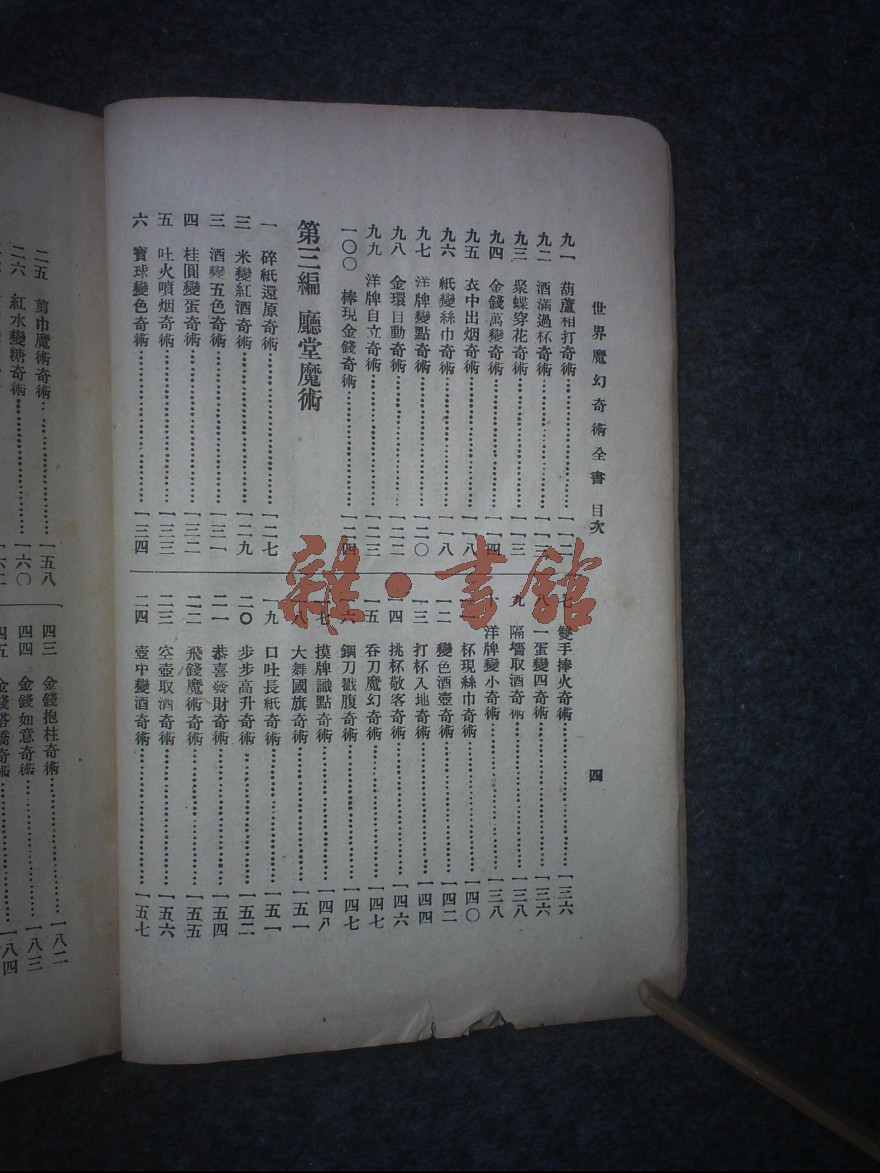 世界魔幻奇術全書 目次
四
九一 葫蘆相打奇術 一一二
九二 酒滿過杯奇術 一一三
九三 聚蝶穿花奇術 一一三
九四 金錢萬變奇術 一一四
九五 衣中出烟奇術 一一八
九六 紙變絲巾奇術 一一八
九七 洋牌變點奇術 一二〇
九八 金環自動奇術 一二二
九九 洋牌自立奇術 一二三
一〇〇 棒現金錢奇術 一二四
第三編 廳堂魔術
一 碎紙還原奇術 一二七
二 米變紅酒奇術 一二九
三 酒變五色奇術 一三一
四 桂圓變蛋奇術 一三二
五 吐火噴烟奇術 一三三
六 寶球變色奇術 一三四
七 雙手捧火奇術 一三六
八 一蛋變四奇術 一三六
九 隔墻取酒奇術 一三八
洋牌變小奇術 一三八
杯現絲巾奇術 一四〇
變色酒壺奇術 一四二
一三 打杯入地奇術 一四四
一四 挑杯敬客奇術 一四六
一五 吞刀魔幻奇術 一四七
一六 鋼刀戳腹奇術 一四七
一七 摸牌識點奇術 一四八
一八 大舞國旗奇術 一五一
一九 口吐長紙奇術 一五一
二〇 步步高升奇術 一五二
二一 恭喜發財奇術 一五四
二二 飛錢魔術奇術 一五五
二三 空壺取酒奇術 一五六
二四 壺中變酒奇術 一五七
二五 剪巾魔術奇術 一五八
二六 紅水變糖奇術 一六〇
四三 金錢抱柱奇術 一八二
四四 金錢如意奇術 一八三
四五 金錢搭橋奇術 一八四
雜·書館